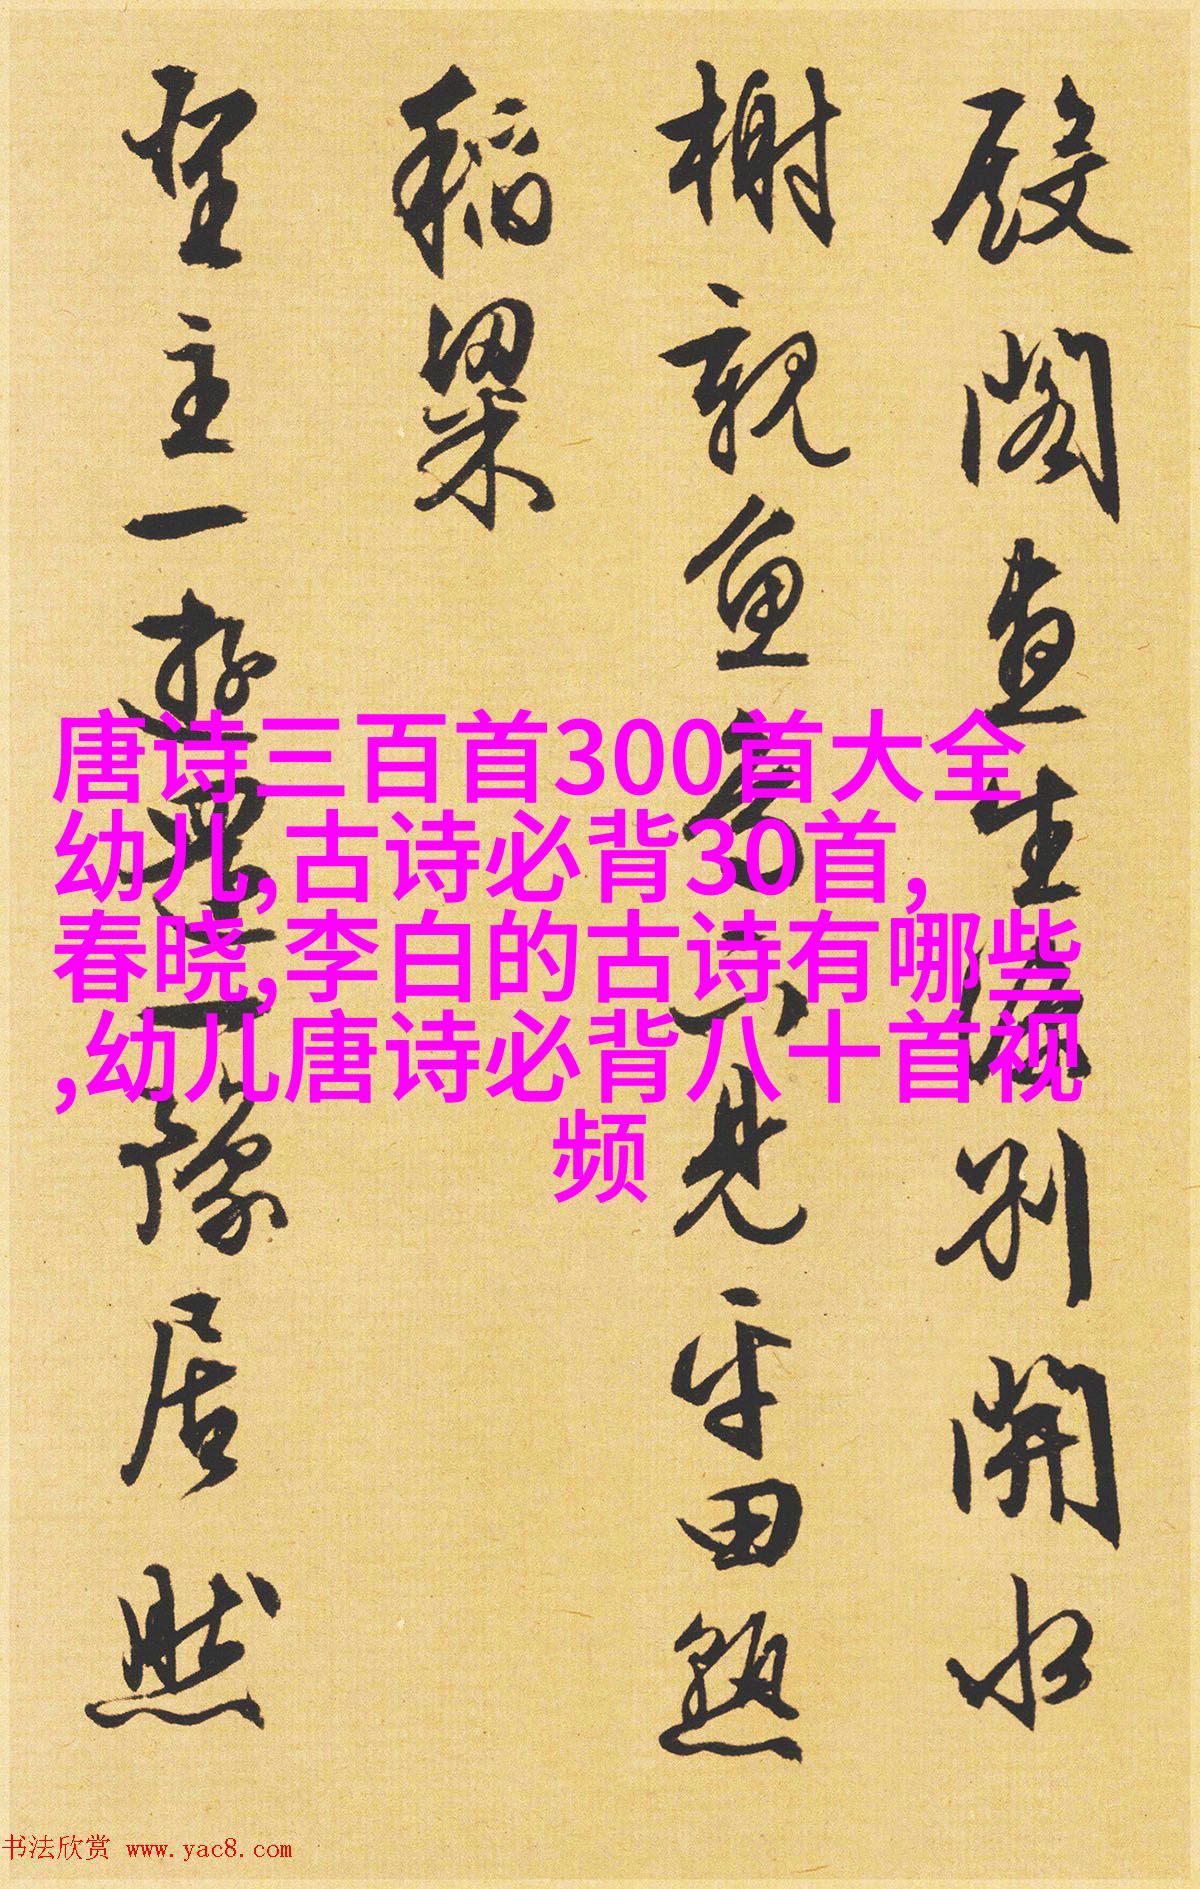 殿閣直生別開水
榭觀魚見平田熟
稻粱
聖主一遊一豫居然
唐诗三百首300首大全
幼儿,古诗必背30首,
春晓,李白的古诗有哪些
,幼儿唐诗必背八十首视
频
书法欣赏 www.yac8.com